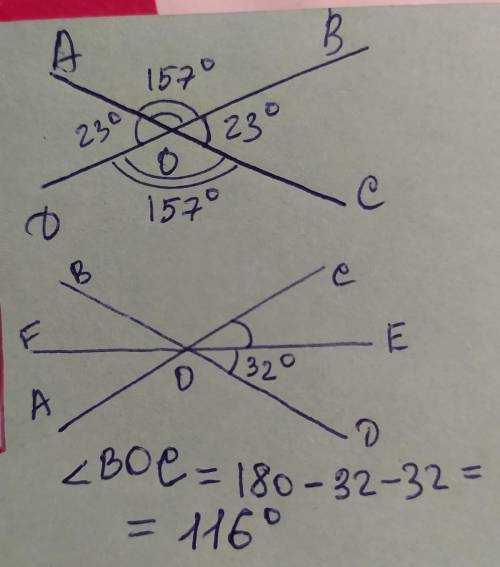 A
B
157°
23°
23°
O
157°
D
C
B
C
F
E
O
32°
A
D
∠BOC = 180 - 32 - 32 =
= 116°